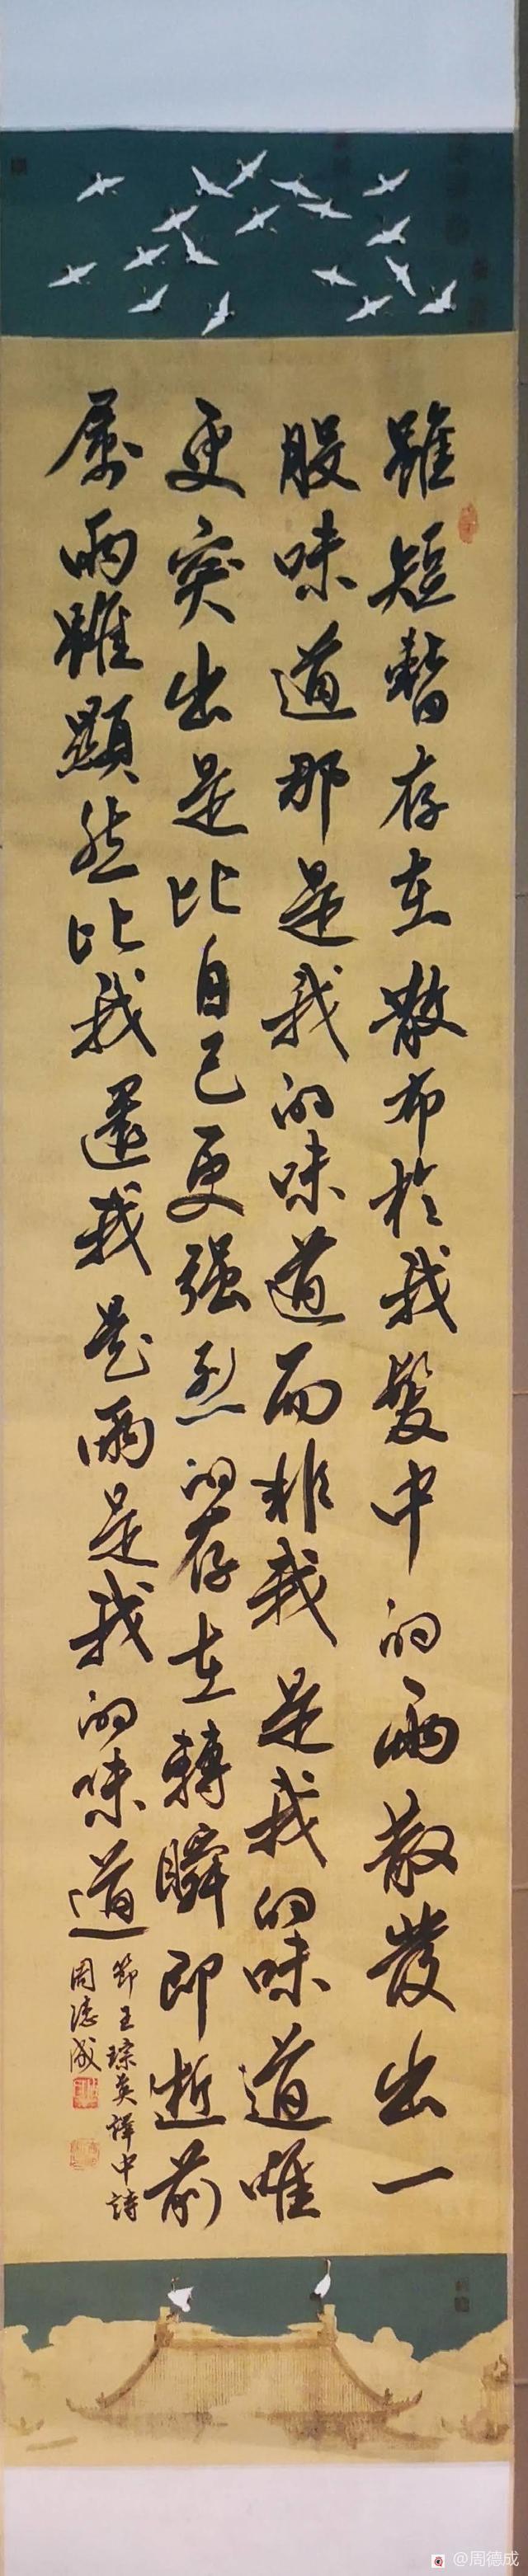 雖短暫存在散布於我髮中的雨散發出一
股味道那是我的味道而非我是我的味道唯
更突出是比自己更强烈的存在轉瞬即逝前
屬雨雖顯然比我還我是雨是我的味道
節王琮英譯中詩
周德成
@周德成